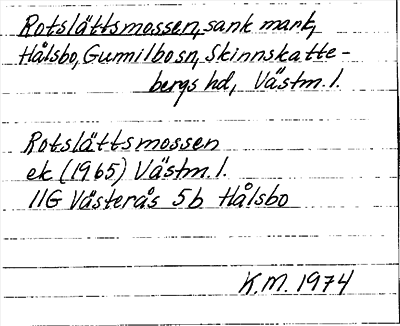 Rotslättsmossen, sank mark,
Hålsbo, Gunnilbo sn, Skinnskatte-
bergs hd, Västm. l.
Rotslättsmossen
ek (1965) Västm. l.
11G Västerås 5b Hålsbo
K.M. 1974